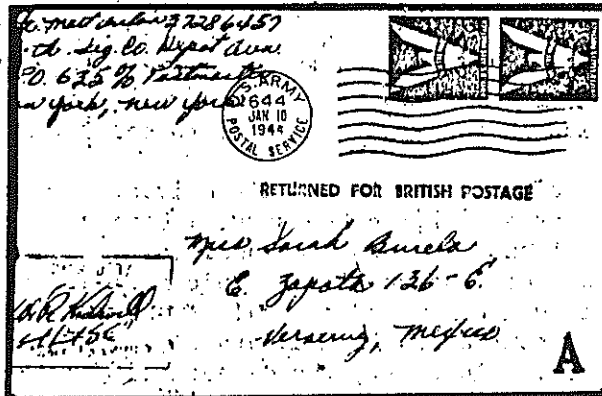 37286457
th. Sig. Co. Depot Avn.
P.O. 635 % Postmaster
New York, New York
U.S. ARMY
644
JAN 10
1944
POSTAL SERVICE
RETURNED FOR BRITISH POSTAGE
Miss Sarah Burela
E. Zapata 136-E.
Veracruz, Mexico
A